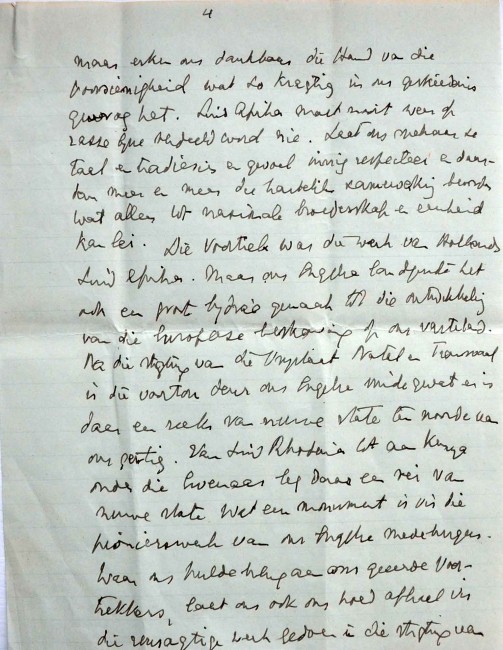 4
maar erken ons dankbaar die Hand van die
Voorsienigheid wat so kragtig in ons geskiedenis
gewerk het. Suid Afrika moet nooit weer op
rasse lyne verdeeld word nie. Laat ons mekaar se
taal en tradiesies en gevoel innig respecteer en daar-
kan meer en meer die hartelik samewerking
wat alleen tot nasionale broederskap en eenheid
kan lei. Die Voortrek was die werk van Hollands
Suid Afrika. Maar ons Engelse landgenote het
ook een groot bydrae gemaak tot die ontwikkeling
van die Europese beskawing op ons vasteland.
Na die stigting van die Vrystaat Natal en Transvaal
is die voortou deur ons Engelse en is
daar een reeks van nuwe state ten noorde van
ons gestig. Van Suid Rhodesia tot aan Kenya
onder die Ewenaar lê daar een rei van
nuwe state wat een monument is vir die
pionierswerk van ons Engelse medeburgers.
Waar ons hulde bring aan ons geëerde Voor-
trekkers, laat ons ook ons hoed afhaal vir
die reusagtige werk gedoen in die stigting van